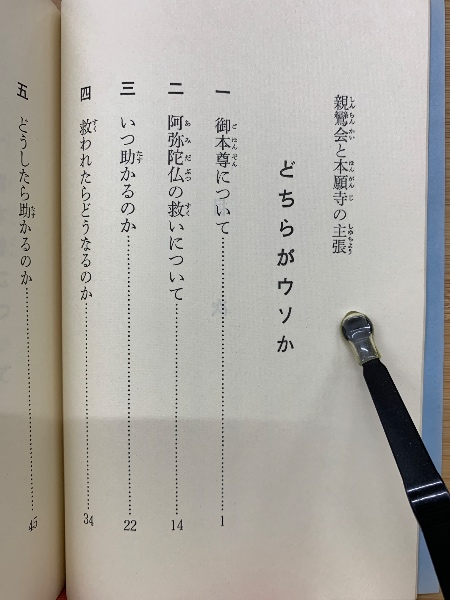 親鸞会と本願寺の主張
どちらがウソか
一 御本尊について……………………1
二 阿弥陀仏の救いについて……………………14
三 いつ助かるのか……………………22
四 救われたらどうなるのか……………………34
五 どうしたら助かるのか……………………45